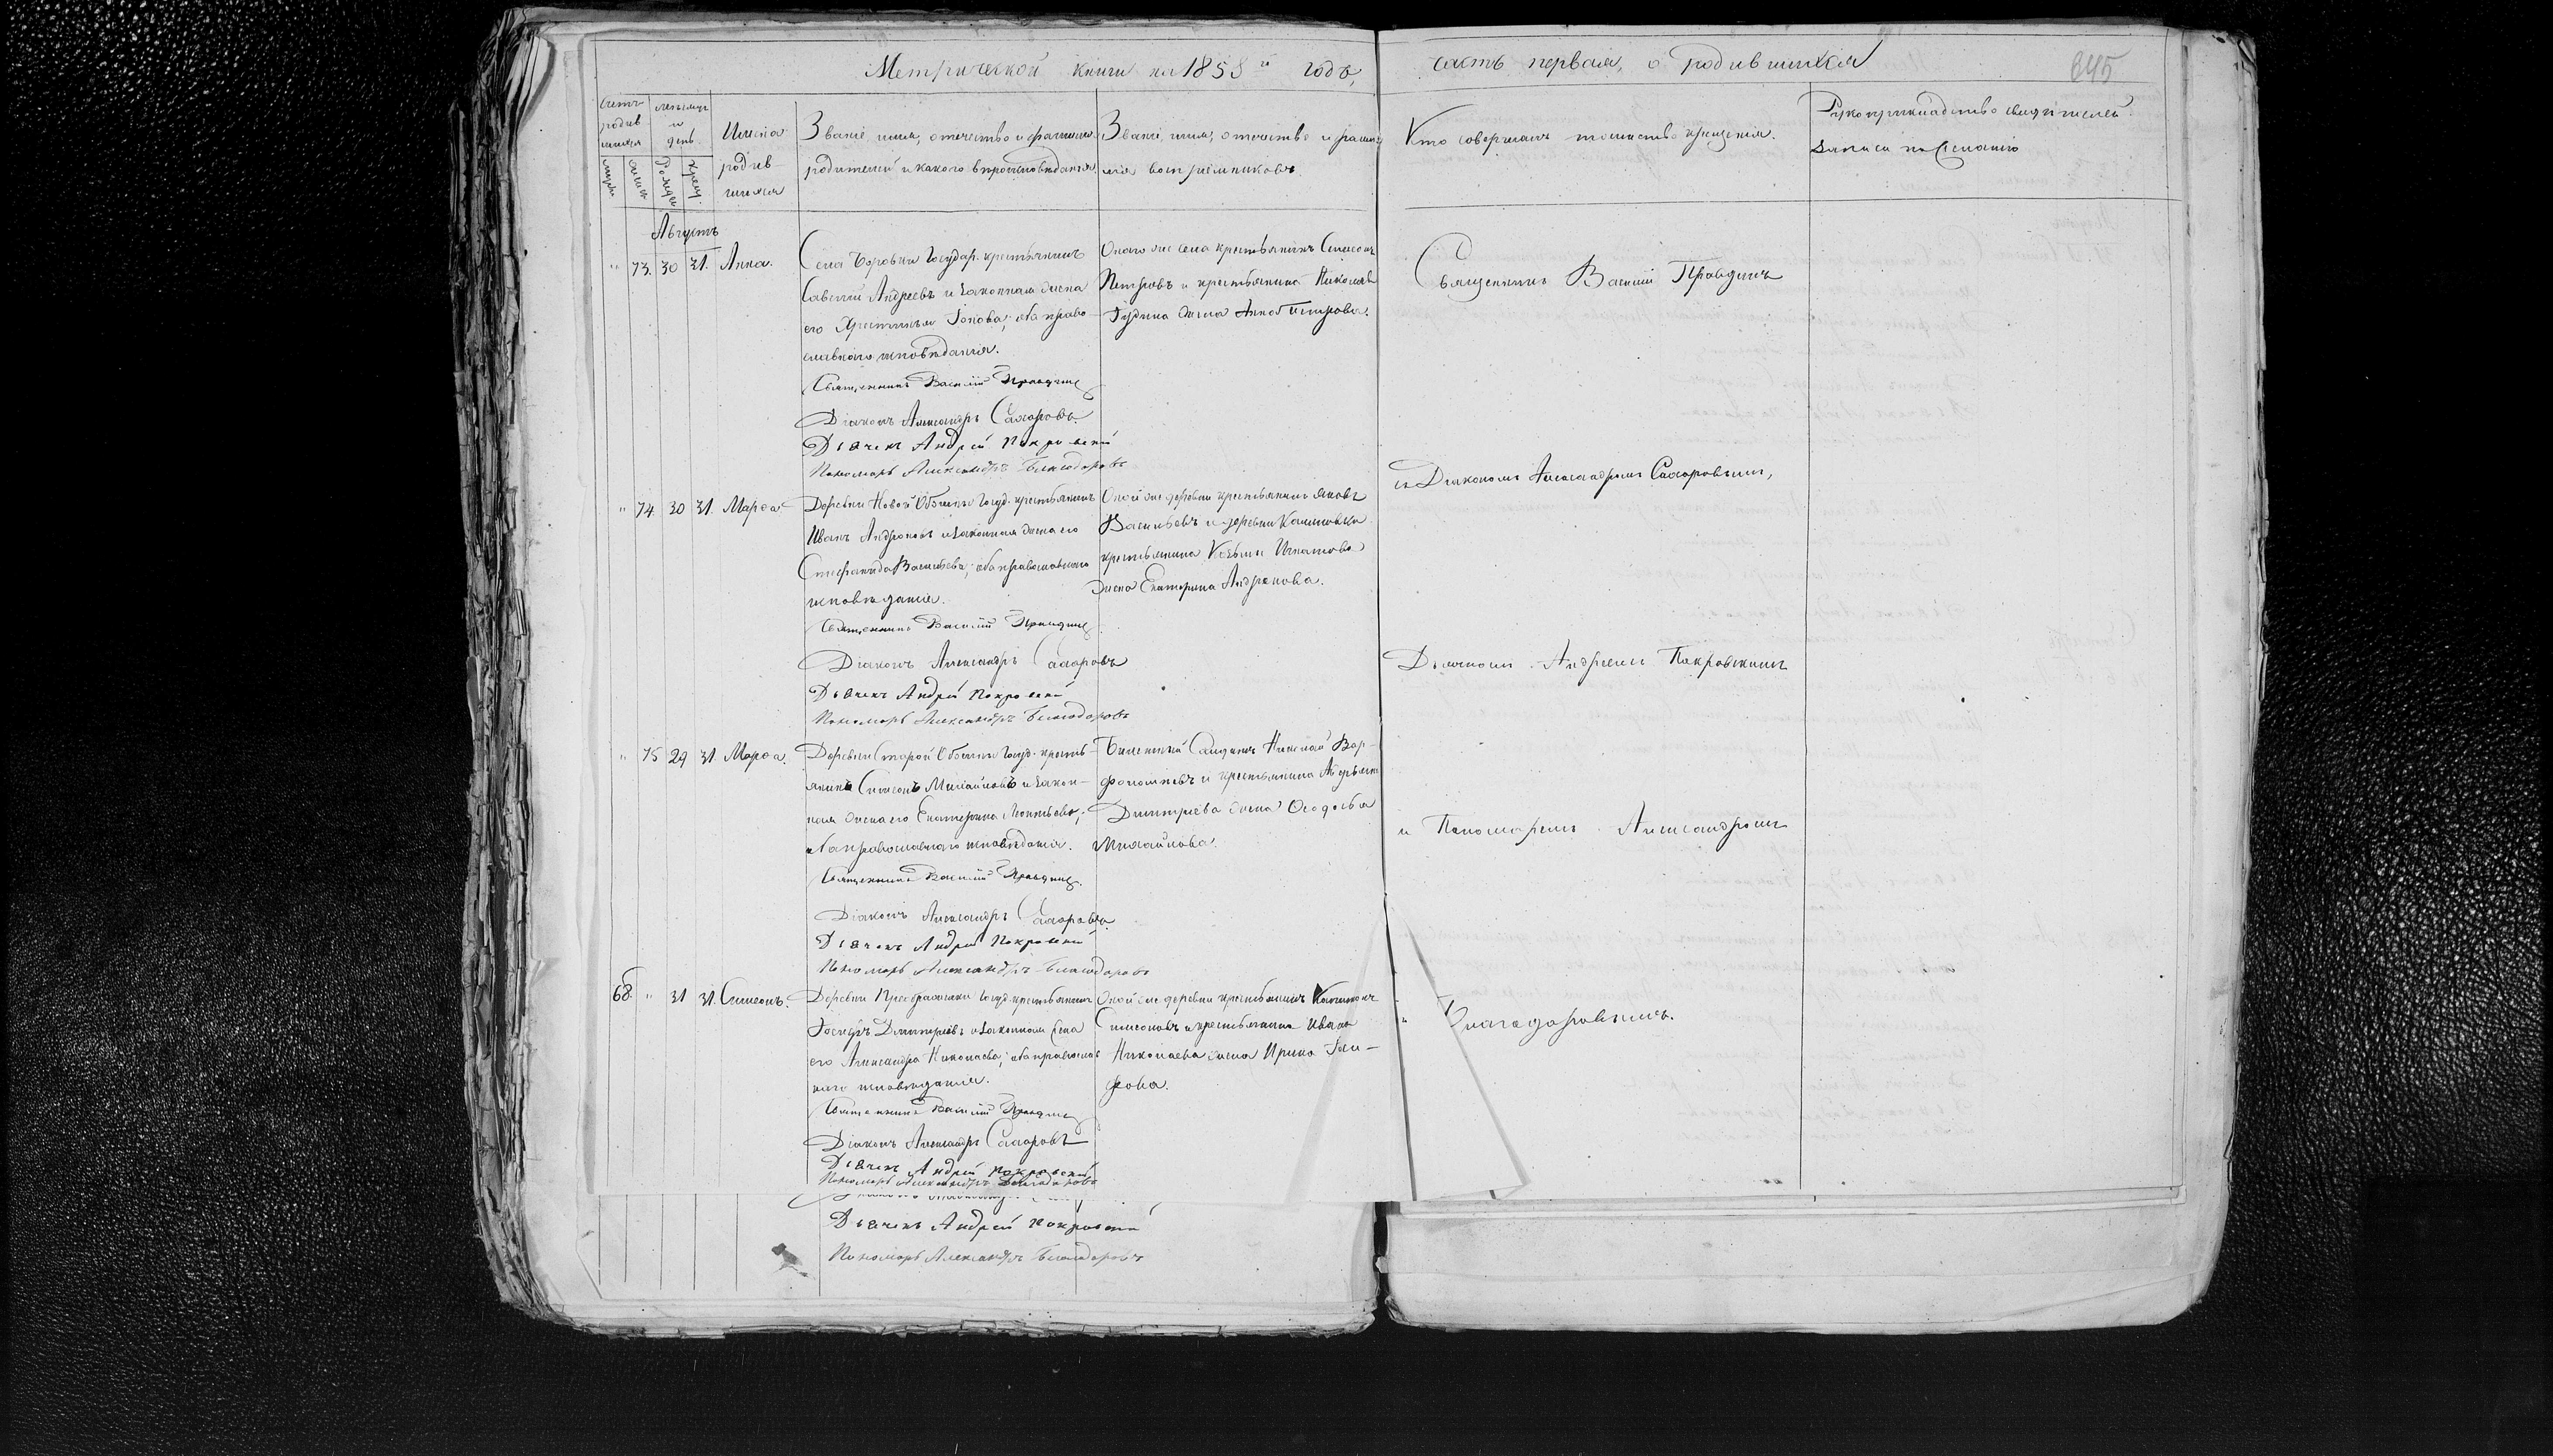 Метрической книги на 1858й годъ,
часть первая, о родившихся
645
Счетъ родив шихся
мужес
женск
месяцъ и день
Рожден
Крещ.
Имена
родив
шихся
Званіе, имя, отчество и фамилія
родителей и какого вероисповѣданія.
Званіе, имя, отчество и фами
лія воспріемниковъ
Кто совершалъ таинство крещенія.
Рукоприкладство свидѣтелей
записи по желанію
Августъ
" 73. 30 31. Анна.
Села Боровки Государ. крестьянинъ
Савелій Андреевъ и законная жена
его Христинья Іонова; оба право
славнаго исповѣданія.
Священникъ Василій Правдинъ
Діаконъ Александръ Сахаровъ.
Дьячекъ Андрей Покровскій
Пономарь Александръ Благодаровъ
Онаго же села крестьянинъ Симеонъ
Петровъ и крестьянина Николая
жена Анна Петрова.
Священникъ Василій Правдинъ
съ Діакономъ Александромъ Сахаровымъ,
Дьячкомъ Андреемъ Покровскимъ
и Пономаремъ Александромъ
Благодаровымъ.
" 74. 30 31. Марѳа.
Деревни Новой Государ. крестьянинъ
Иванъ Андроновъ и законная жена его
Стефанида Васильева; оба православнаго
исповѣданія.
Священникъ Василій Правдинъ
Діаконъ Александръ Сахаровъ
Дьячекъ Андрей Покровскій
Пономарь Александръ Благодаровъ
Оной же деревни крестьянинъ Яковъ
Васильевъ и деревни Калиновки
крестьянина Козьмы Игнатова
жена Екатерина Андронова.
" 75 29 31. Марѳа.
Деревни Старой Госуд. кресть-
янинъ Симеонъ Михайловъ и закон-
ная жена его Екатерина Леонтьева;
оба православнаго исповѣданія.
Священникъ Василій Правдинъ.
Діаконъ Александръ Сахаровъ
Дьячекъ Андрей Покровскій
Пономарь Александръ Благодаровъ
Билетный Солдатъ Николай Вар-
фоломеевъ и крестьянина
Дмитріева жена Ѳеодосья
Михайлова.
68. " 31 31. Симеонъ.
Деревни Преображенки Госуд. крестьянинъ
Іосифъ Дмитріевъ и законная жена
его Александра Николаева; оба православ
наго исповѣданія.
Священникъ Василій Правдинъ
Діаконъ Александръ Сахаровъ
Дьячекъ Андрей Покровскій
Пономарь Александръ Благодаровъ
Оной же деревни крестьянинъ Капитонъ
Симеоновъ и крестьянина Ивана
Николаева жена Ирина
Дьячекъ Андрей Покровскій
Пономарь Александръ Благодаровъ